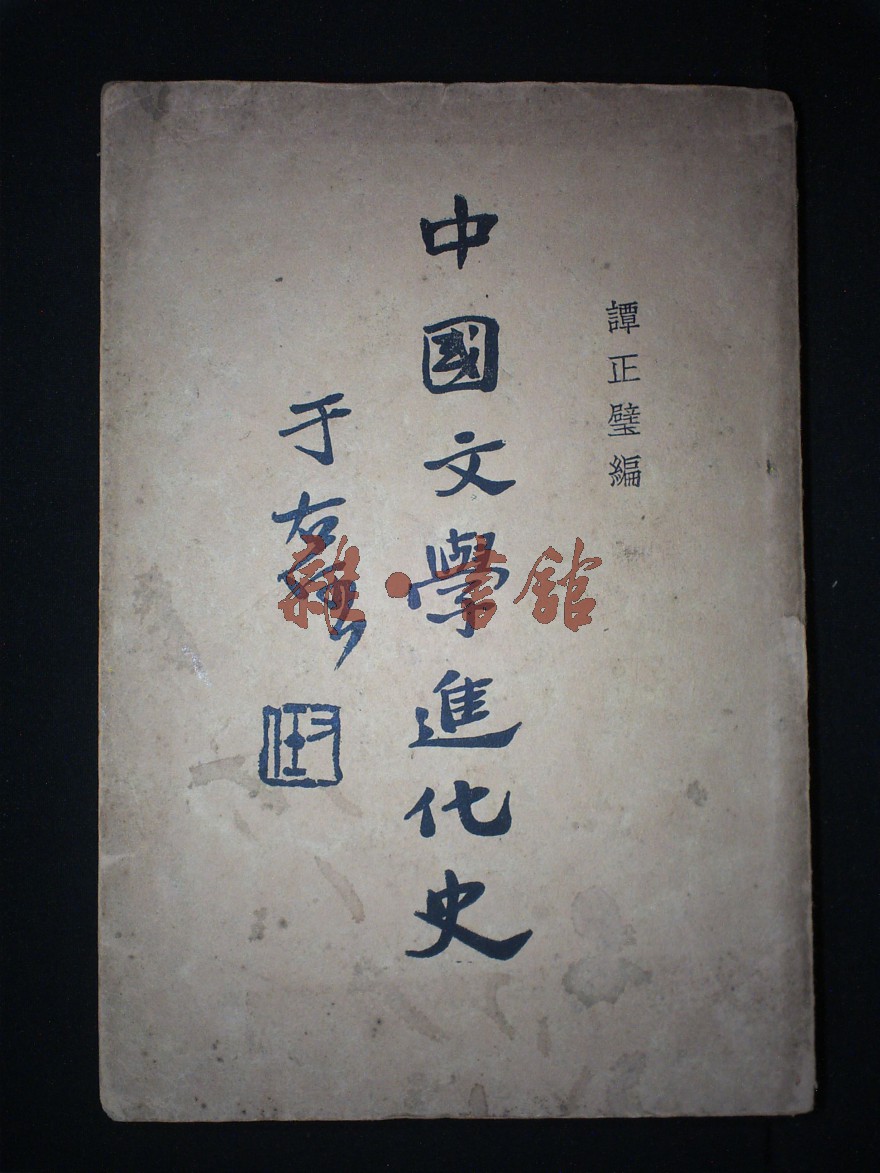 譚正璧編
中國文學進化史
于右任
雜·書館